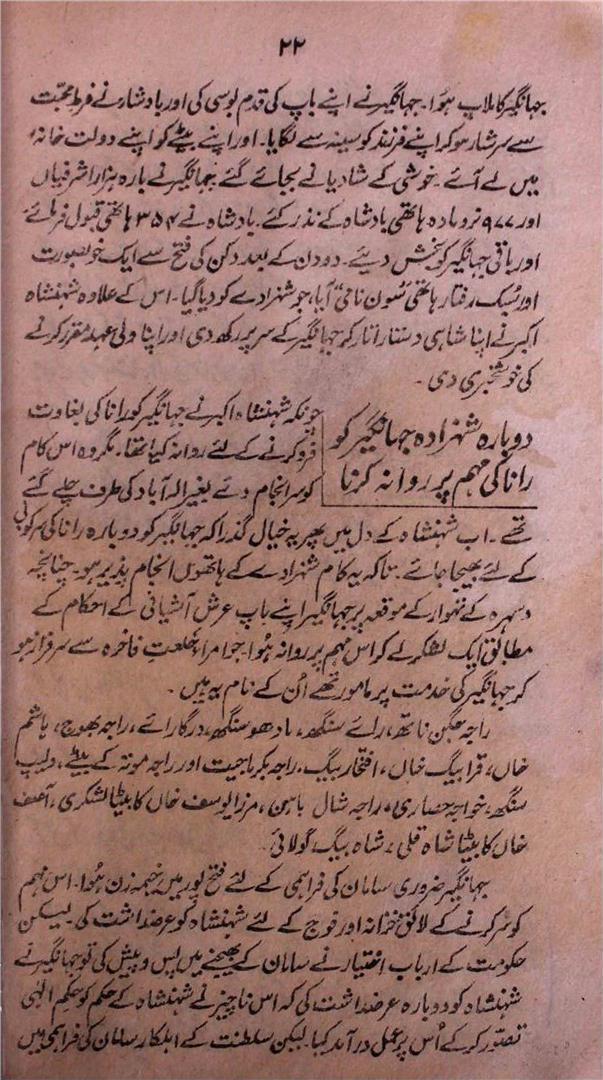 ۲۲
جہانگیر کا ملاپ ہوا۔ جہانگیر نے اپنے باپ کی قدم بوسی کی اور بادشاہ نے فرط محبت
سے سرشار ہو کر اپنے فرزند کو سینہ سے لگایا۔ اور اپنے بیٹے کو اپنے دولت خانہ
میں لے آئے۔ خوشی کے شادیانے بجائے گئے جہانگیر نے بارہ ہزار اشرفیاں
اور ۹۷۷ نر و مادہ ہاتھی بادشاہ کے نذر کئے۔ بادشاہ نے ۳۵۴ ہاتھی قبول فرمائے
اور باقی جہانگیر کو بخش دیئے۔ دو دن کے بعد دکن کی فتح سے ایک خوبصورت
اور سُبک رفتار ہاتھی سُون نامی آیا، جو شہزادے کو دیا گیا۔ اس کے علاوہ شہنشاہ
اکبر نے اپنا شاہی دستار اتار کر جہانگیر کے سر پر رکھ دی اور اپنا ولی عہد مقرر کرنے
کی خوشخبری دی۔
دوبارہ شہزادہ جہانگیر کو
رانا کی مہم پر روانہ کرنا
چونکہ شہنشاہ اکبر نے جہانگیر کو رانا کی بغاوت
فرو کرنے کے لئے روانہ کیا تھا۔ مگر وہ اس کام
کو سرانجام دئے بغیر الہ آباد کی طرف چلے گئے
تھے۔ اب شہنشاہ کے دل میں پھر یہ خیال گذرا کہ جہانگیر کو دوبارہ رانا کی سرکوبی
کے لئے بھیجا جائے۔ تاکہ یہ کام شہزادے کے ہاتھوں انجام پذیر ہو۔ چنانچہ
دسہرہ کے تہوار کے موقعہ پر جہانگیر اپنے باپ عرش آشیانی کے احکام کے
مطابق ایک لشکر لے کر اس مہم پر روانہ ہُوا۔ جو امراء خلعتِ فاخرہ سے سرفراز ہو
کر جہانگیر کی خدمت پر مامور تھے اُن کے نام یہ ہیں۔
راجہ جگن ناتھ، رائے سنگھ، مادھو سنگھ، درگا رائے، راجہ بھوج، ہاشم
خاں، قرا بیگ خاں، افتخار بیگ۔ راجہ بکرماجیت اور راجہ موتہ کے بیٹے، دلیپ
سنگھ، خواجہ حصاری، راجہ شال باہن، مرزا یوسف خاں کا بیٹا لشکری، آصف
خاں کا بیٹا شاہ قلی، شاہ بیگ گولائی
جہانگیر ضروری سامان کی فراہمی کے لئے فتح پور میں خیمہ زن ہُوا۔ اس مہم
کو سر کرنے کے لائق خزانہ اور فوج کے لئے شہنشاہ کو عرضداشت کی۔ لیکن
حکومت کے ارباب اختیار نے سامان کے بھیجنے میں پس و پیش کی تو جہانگیر نے
شہنشاہ کو دوبارہ عرضداشت کی کہ اس ناچیز نے شہنشاہ کے حکم کو حکم الٰہی
تصوّر کر کے اُس پر عمل در آمد کیا۔ لیکن سلطنت کے اہلکار سامان کی فراہمی میں